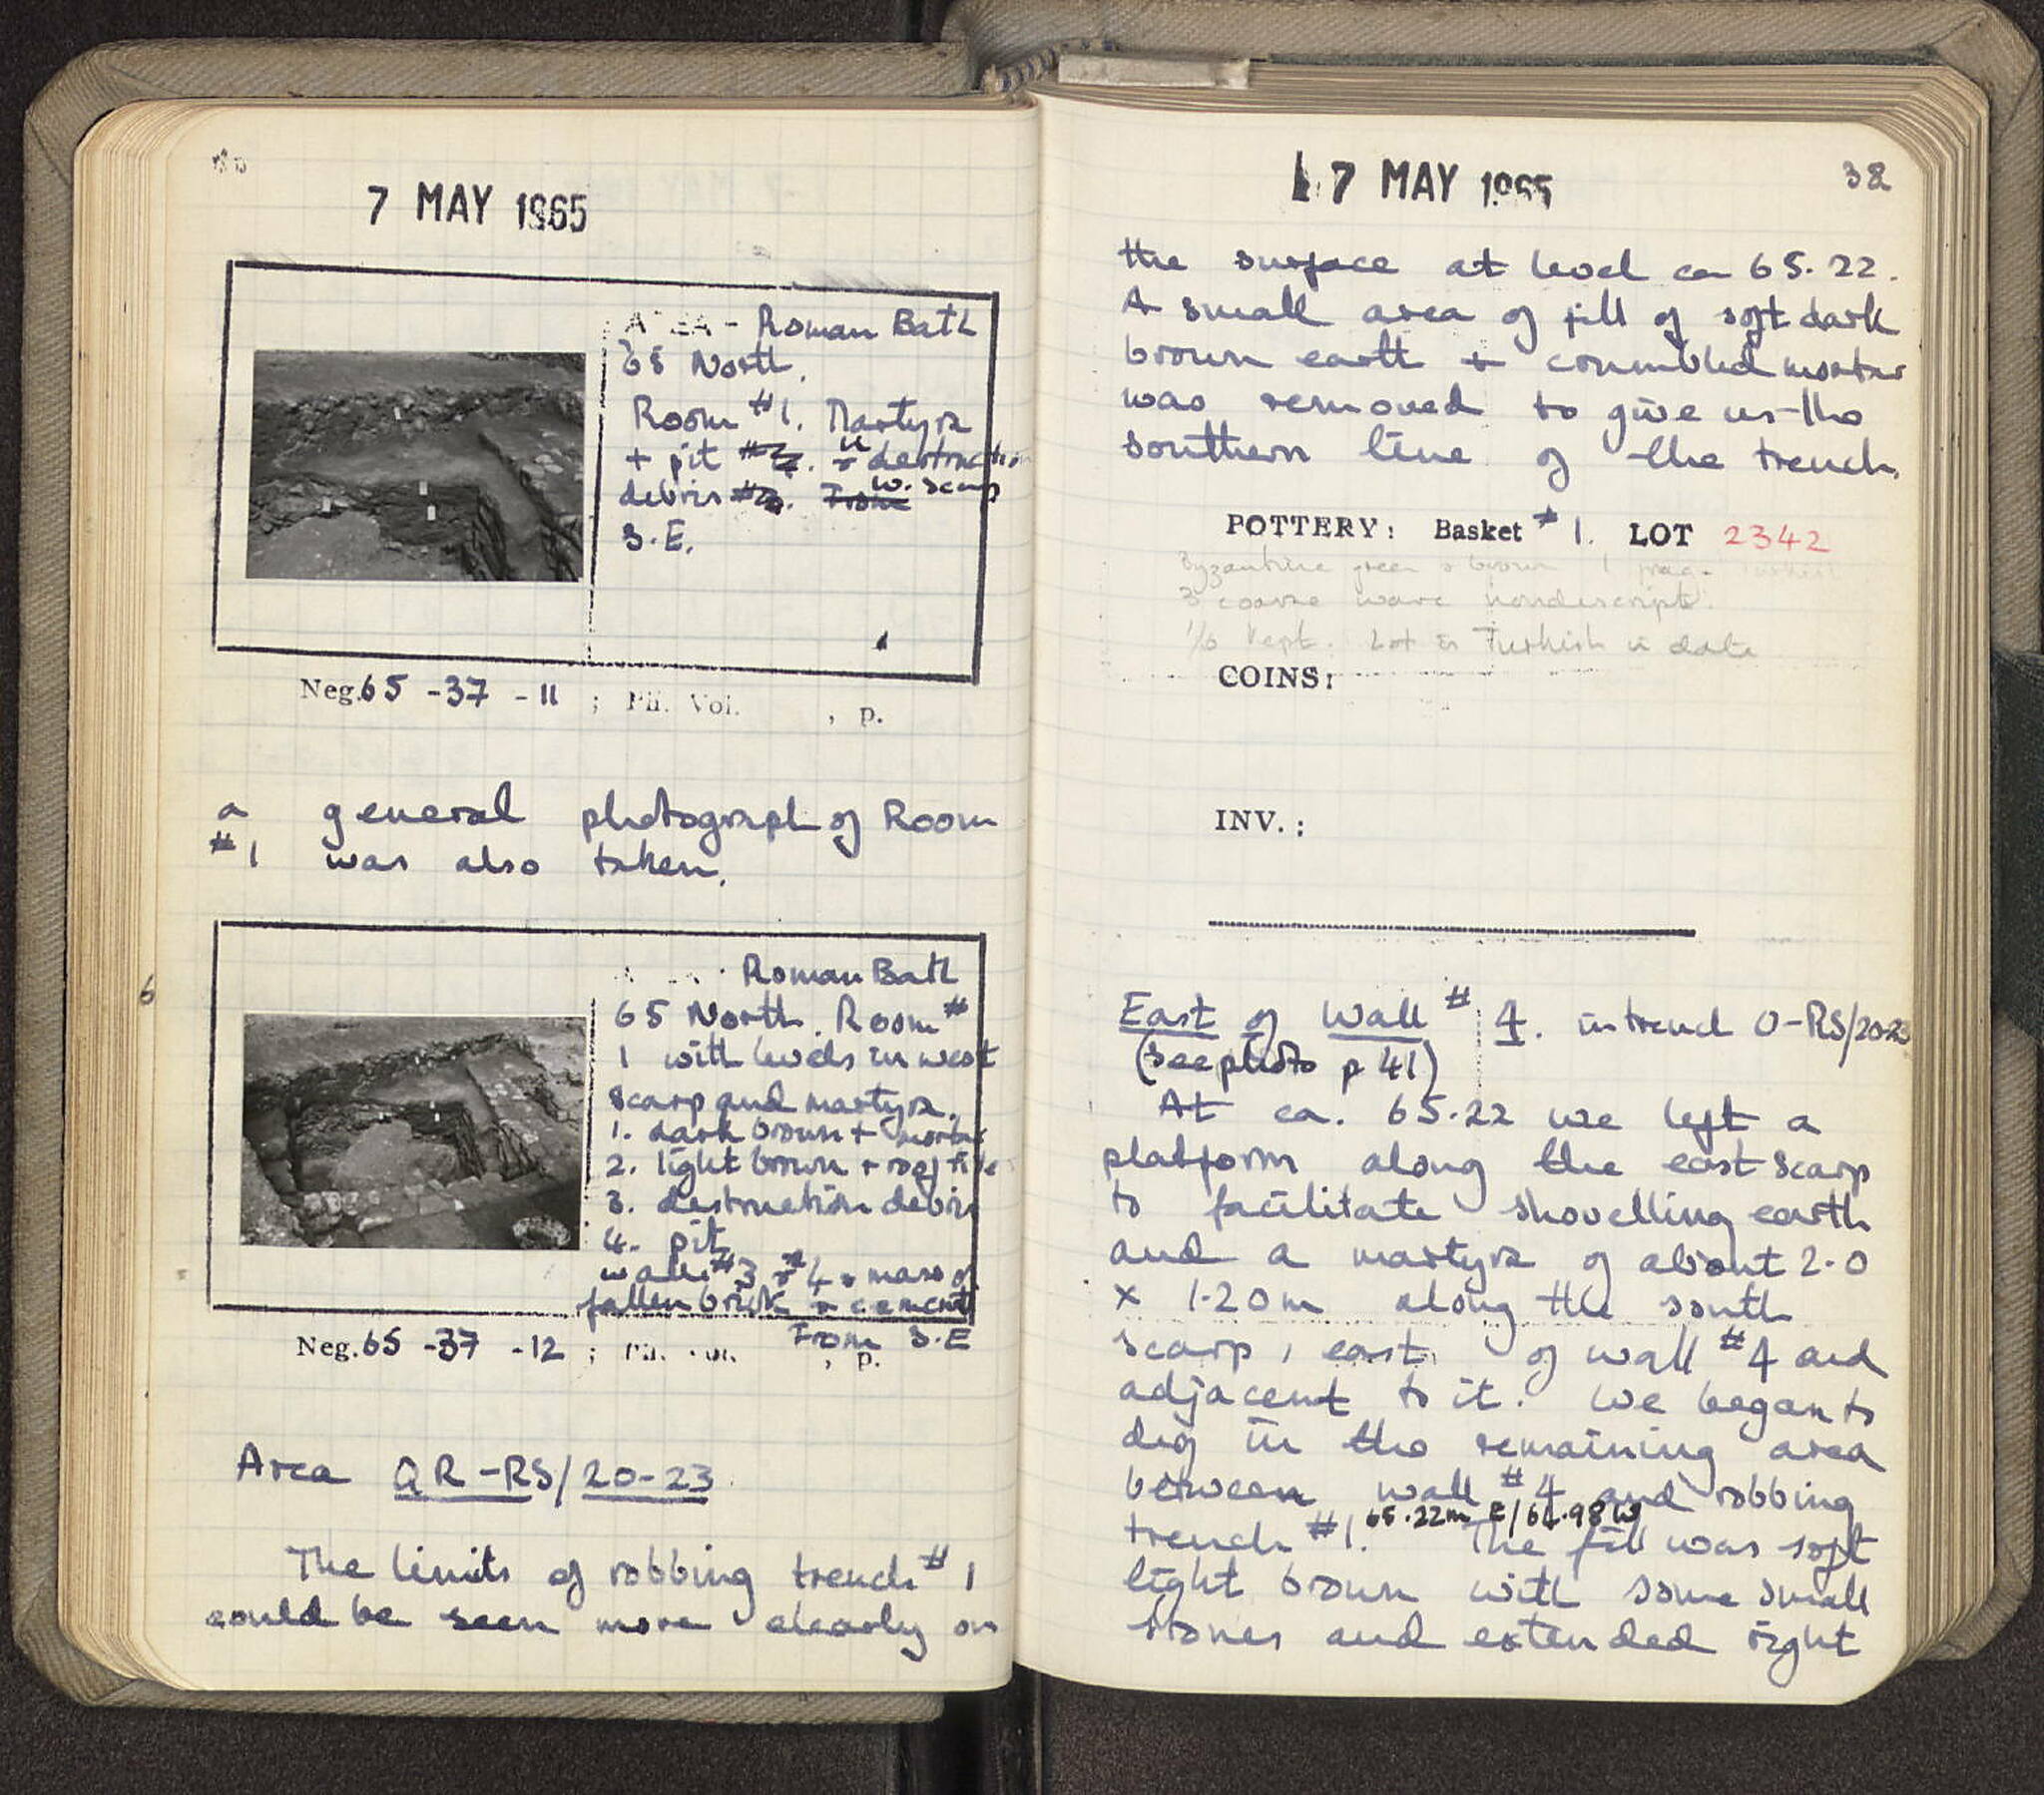 7 MAY 1965
AREA - Roman Bath
65 North.
Room #1. Martyra
+ pit #2. + destruction
debris #3. From w. scarp
S.E.
Neg. 65 - 37 - 11 ; Ph. Vol. , p.
a general photograph of Room
#1 was also taken.
Roman Bath
65 North. Room #
1 with levels in west
scarp and martyra.
1. dark brown + mortar
2. light brown + roof tile
3. destruction debris
4. pit
walls #3 + #4 + mass of
fallen brick + cement
From S.E
Neg. 65 - 37 - 12 ; Ph. Vol. , p.
6
Area QR-RS/20-23
The limits of robbing trench #1
could be seen more clearly on
7 MAY 1965
38
the surface at level ca 65.22.
A small area of fill of soft dark
brown earth + crumbled mortar
was removed to give us the
southern line of the trench.
POTTERY: Basket #1. LOT 2342
Byzantine green + brown 1 frag.
3 coarse ware nondescript.
1/0 kept. Lot is Turkish in date
COINS:
INV.:
East of Wall #4. in trench O-RS/20-23
(see photo p 41)
At ca. 65.22 we left a
platform along the east scarp
to facilitate shovelling earth
and a martyra of about 2.0
x 1.20m along the south
scarp, east of wall #4 and
adjacent to it. We began to
dig in the remaining area
between wall #4 and robbing
trench #1. 65.22m E/64.98W The fill was soft
light brown with some small
stones and extended right